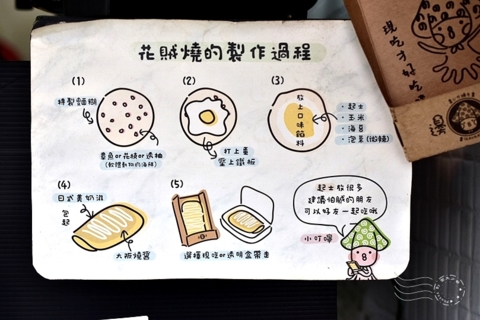 花賊燒的製作過程
(1)
特製麵糊
章魚or花枝or透抽
(軟體動物的海鮮)
(2)
打上蛋
蓋上鐵板
(3)
放上口味餡料
・起士
・玉米
・海苔
・泡菜(微辣)
(4)
日式美奶滋
包起
大阪燒醬
(5)
選擇現吃or透明盒帶走
起士放很多
建議怕膩的朋友
可以好友一起吃哦
小叮嚀
現吃才好吃